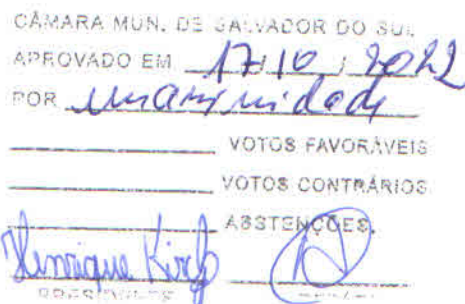 CÂMARA MUN. DE SALVADOR DO SUL
APROVADO EM 17/10/2022
POR unanimidade
VOTOS FAVORÁVEIS
VOTOS CONTRÁRIOS
ABSTENÇÕES.
Henrique Kirch
PRESIDENTE